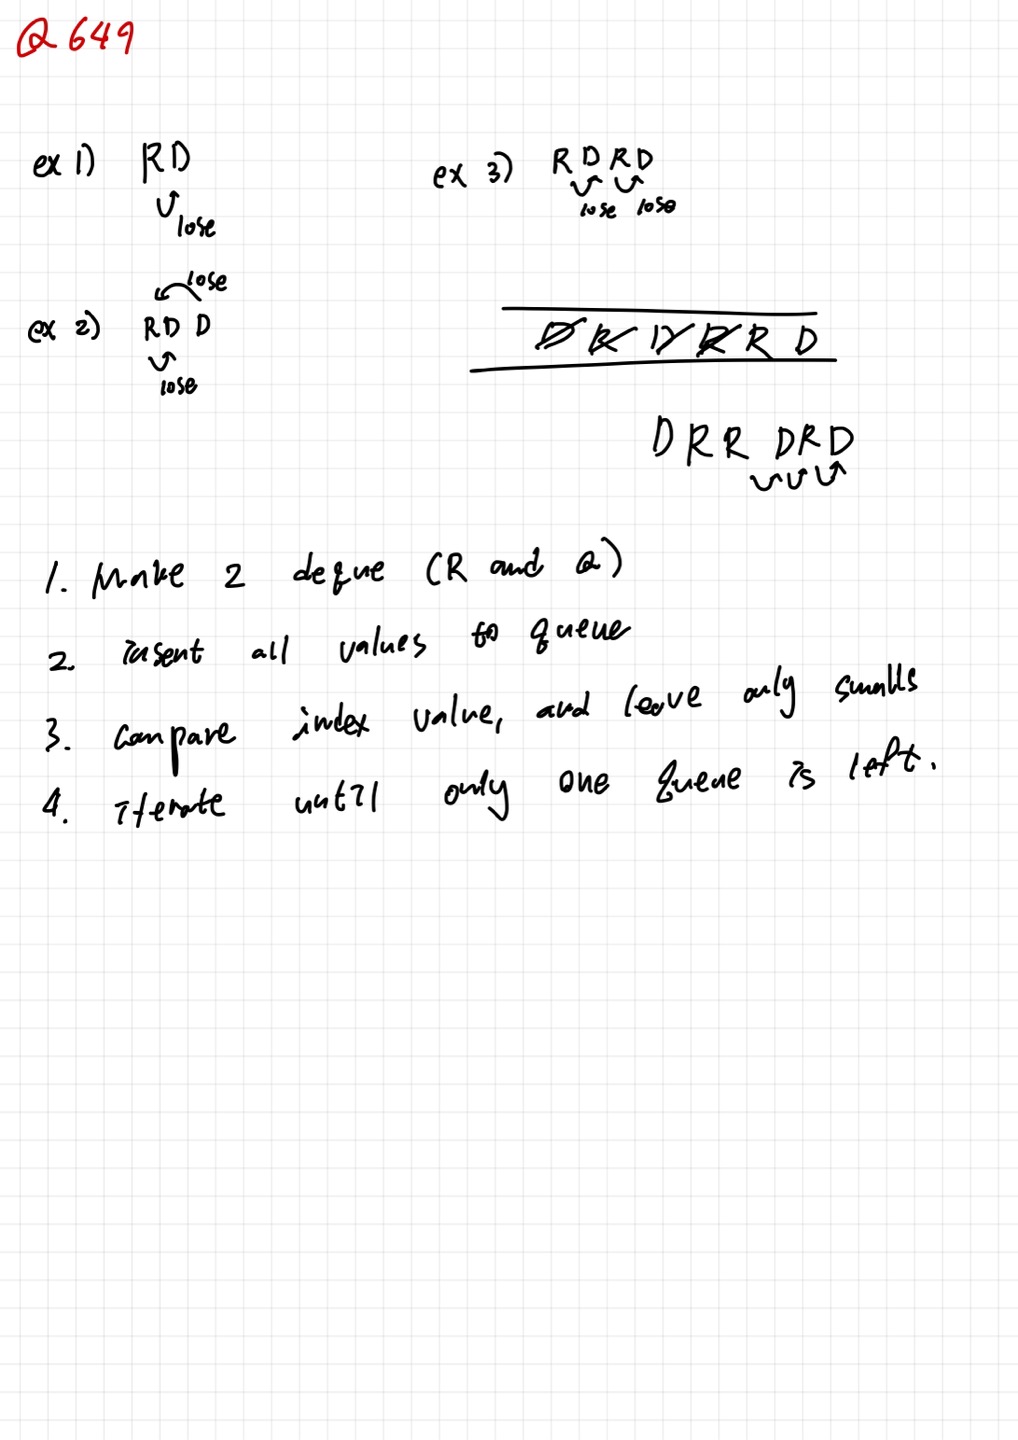 Q 649
ex 1) RD
lose
ex 3) RDRD
lose lose
lose
ex 2) RD D
lose
D R D R R D
DRR DRD
1. Make 2 deque (R and Q)
2. insert all values to queue
3. compare index value, and leave only smalls
4. iterate until only one queue is left.